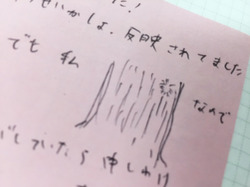 た！
せいかしょ、反映されてました
でも 私 なので
していたら申しわけ